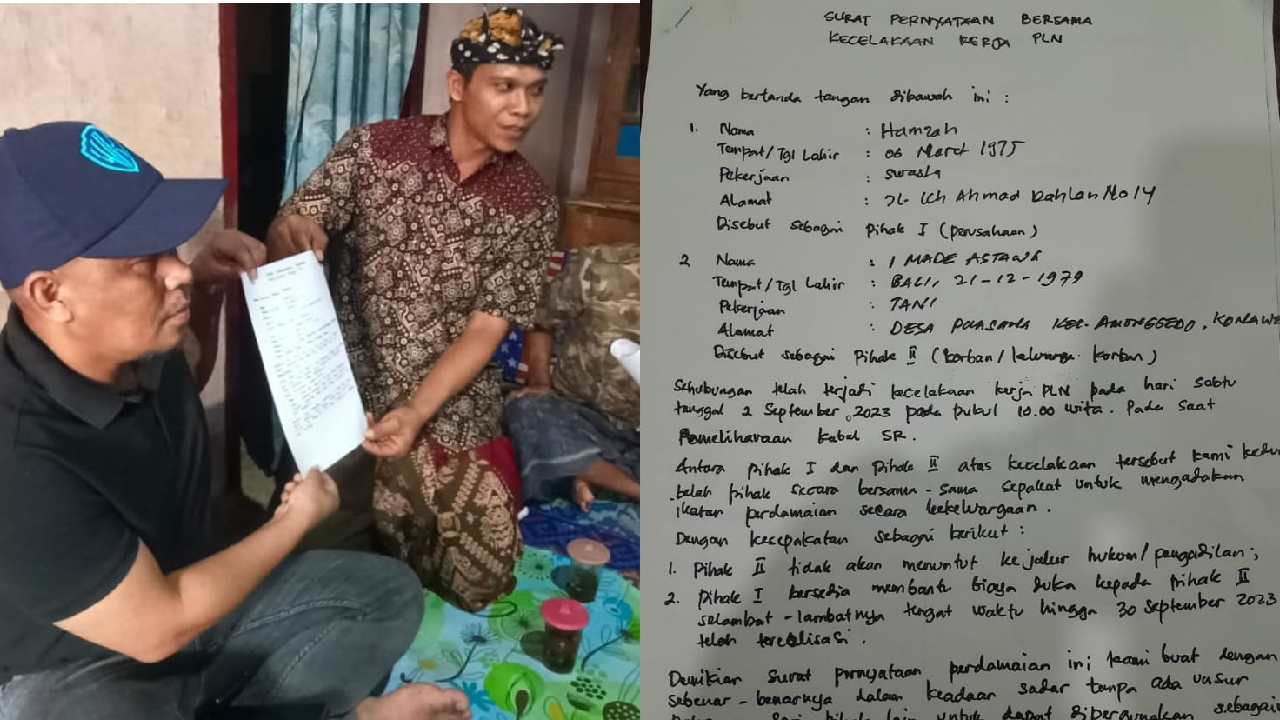 SURAT PERNYATAAN BERSAMA
KECELAKAAN KERJA PLN
Yang bertanda tangan dibawah ini :
1. Nama : Hamzah
Tempat/Tgl Lahir : 06 Maret 1975
Pekerjaan : swasta
Alamat : JL. KH Ahmad Dahlan No 14
Disebut sebagai Pihak I (perusahaan)
2 Nama : I MADE ASTAWA
Tempat/Tgl Lahir : BALI, 21-12-1979
Pekerjaan : TANI
Alamat : DESA KEC. AMONGGEDO, KONAWE
Disebut sebagai Pihak II (korban/keluarga korban)
Sehubungan telah terjadi kecelakaan kerja PLN pada hari sabtu
tanggal 2 September, 2023 pada pukul 10.00 wita. Pada saat
Pemeliharaan kabel SR.
Antara pihak I dan pihak II atas kecelakaan tersebut kami kedua
belah pihak secara bersama-sama sepakat untuk mengadakan
ikatan perdamaian secara kekeluargaan.
Dengan kesepakatan sebagai berikut :
1. Pihak II tidak akan menuntut ke jalur hukum/pengadilan;
2. Pihak I bersedia membantu biaya duka kepada pihak II
selambat-lambatnya tenggat waktu hingga 30 September 2023
telah terealisasi.
Demikian surat pernyataan perdamaian ini kami buat dengan
sebenar-benarnya dalam keadaan sadar tanpa ada unsur
dari pihak lain untuk dapat dipergunakan sebagai